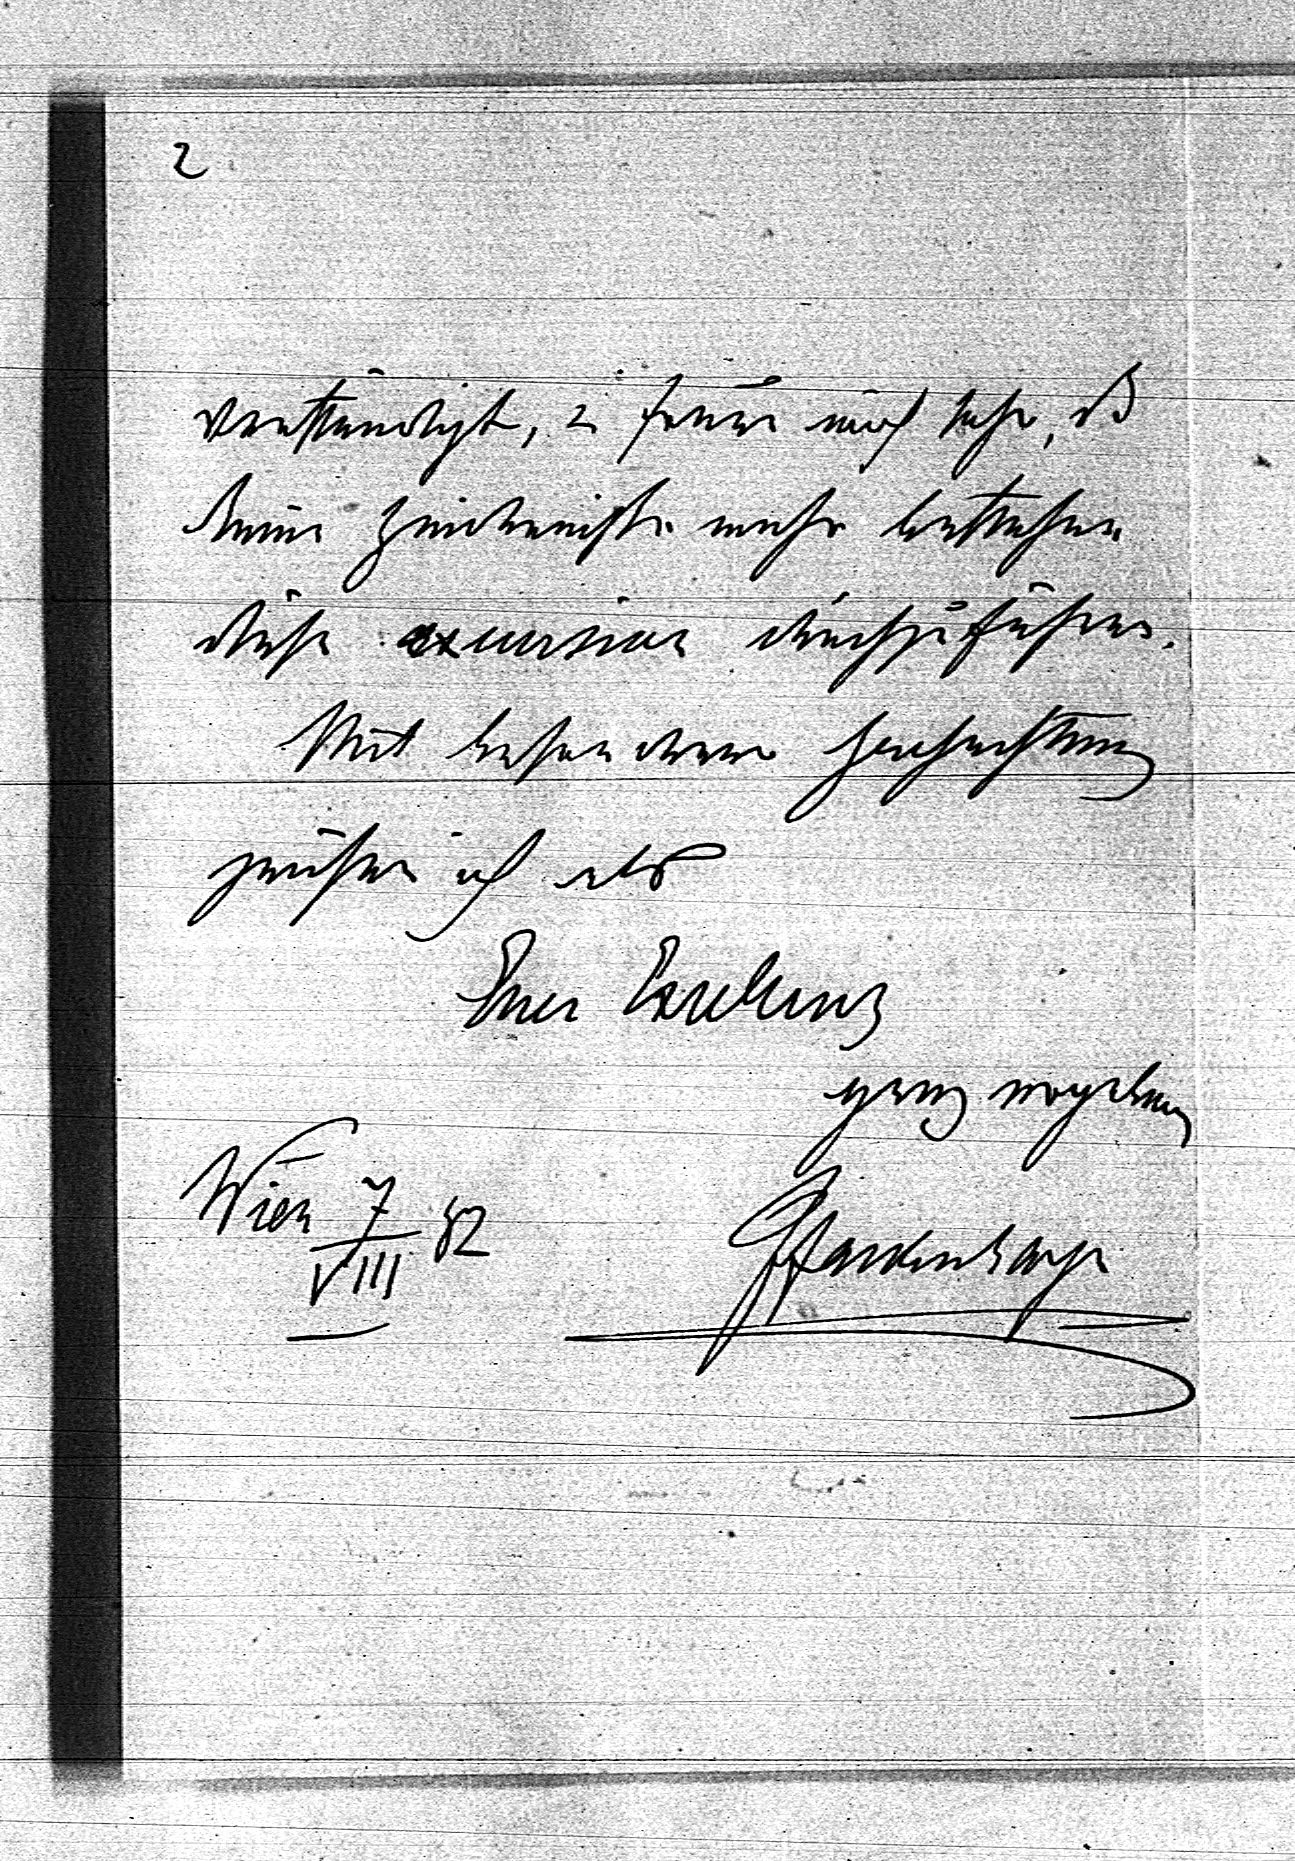 2
verständigt, u. freue mich sehr, dß
keine Hindernisse mehr bestehen
diese excursion durchzuführen.
Mit besonderer Hochachtung
zeichne ich als
Euer Excellenz
ganz ergebener
Wien 7/VIII 82